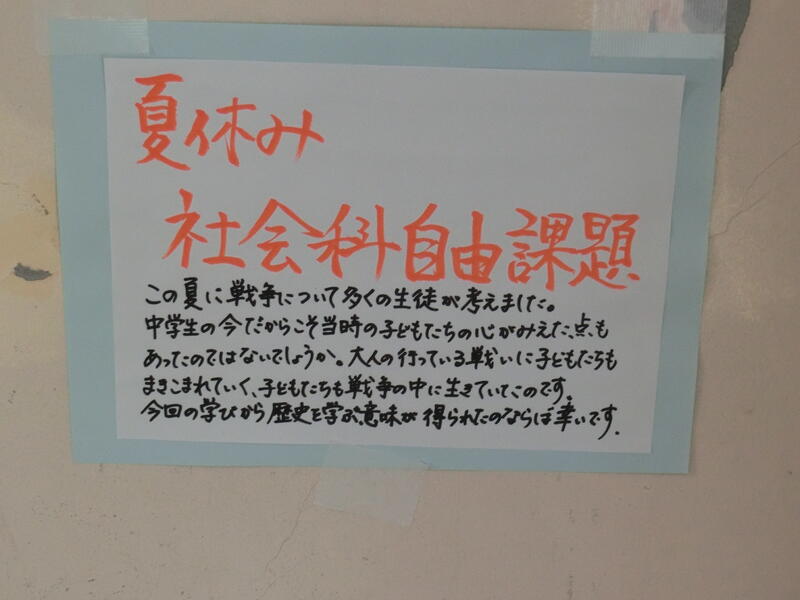 夏休み
社会科自由課題
この夏に戦争について多くの生徒が考えました。
中学生の今だからこそ当時の子どもたちの心がみえた、点も
あったのではないでしょうか。大人の行っている戦いに子どもたちも
まきこまれていく、子どもたちも戦争の中に生きていたのです。
今回の学びから歴史を学ぶ意味が得られたのならば幸いです.